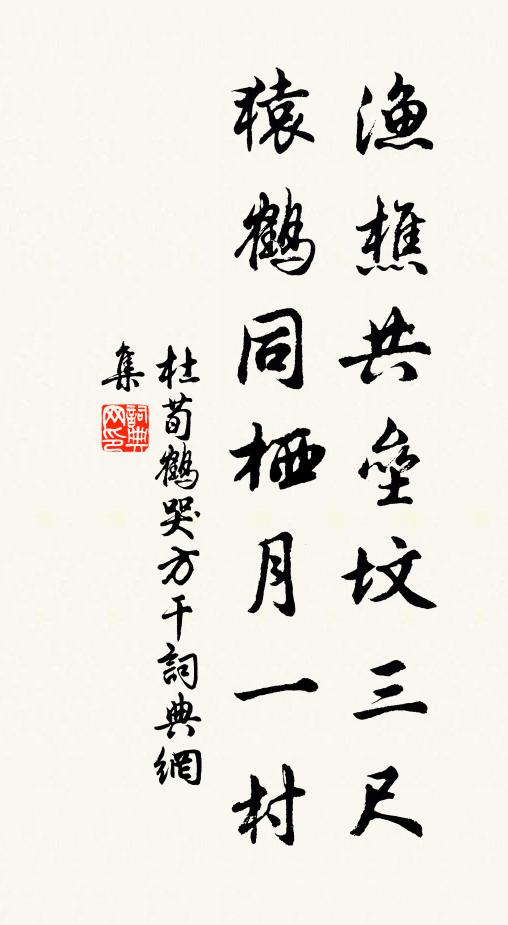 漁樵共壘墳三尺
猿鶴同栖月一村
杜荀鶴哭方干詞典網
集
詞典网印